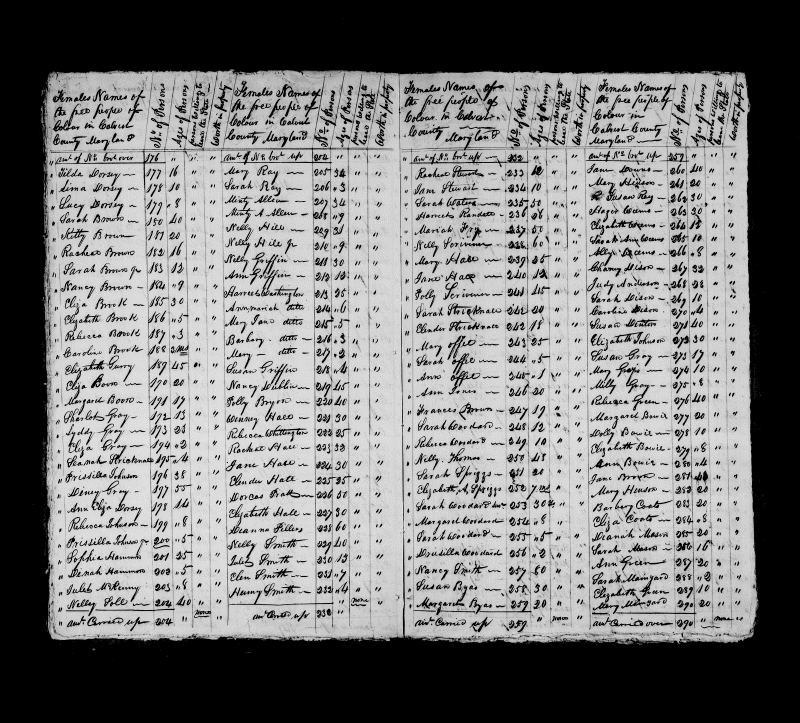 Females Names of
the free people of
Colour in Calvert
County Maryland
No. of Persons
Ages of Persons
Worth in property
amt of No. brt over 176
Tilda Dorsey 177 16
Lima Dorsey 178 10
Lucy Dorsey 179 8
Sarah Brown 180 40
Kitty Brown 181 20
Rachael Brown 182 16
Sarah Brown jr 183 12
Nancy Brown 184 9
Eliza Brook 185 30
Elizabeth Brook 186 5
Rebecca Brook 187 3
Caroline Brook 188 3 mos
Elizabeth Gurry 189 45
Eliza Boon 190 20
Margaret Boon 191 17
Charlot Gray 172 13
Lyddy Gray 173 23
Eliza Gray 194 2
Leanah Stricknale 195 4
Prissilla Johnson 196 38
Miney Gray 197 55
Ann Eliza Dorsy 198 14
Rebecca Johnson 199 8
Prissilla Johnson jr 200 5
Sophia Hammon 201 25
Dinah Hammon 202 5
Julet McKenny 203 8
Nelley Toll 204 40
amt Carried up 204 none
Females Names of
the free people of
Colour in Calvert
County Maryland
No. of Persons
Ages of Persons
Worth in property
amt of No. brt up 204
Mary Ray 205 34
Sarah Ray 206 3
Minty Allen 207 34
Minty A Allen 208 9
Nelly Hill 209 31
Nelly Hill jr 210 9
Nelly Griffin 211 30
Ann Griffin 212 12
Harriet Washington 213 25
Annmariah ditto 214 6
Mary Jane ditto 215 5
Barbary ditto 216 3
Mary ditto 217 2
Susan Griffin 218 14
Nancy Dublin 219 45
Polly Bryon 220 40
Winny Hall 221 30
Rebecca Whittington 222 25
Rachel Hall 223 33
Jane Hall 224 30
Cloudia Hall 225 35
Dorcas Brook 226 50
Elizabeth Hall 227 30
Deanna Fillers 228 60
Nelly Smith 229 40
Julia Smith 230 13
Ellen Smith 231 7
Henny Smith 232 4
amt Carried up 232 none
Females Names of
the free people of
Colour in Calvert
County Maryland
No. of Persons
Ages of Persons
Worth in property
amt of No. brt up 232
Rachael Stewart 233 12
Jane Stewart 234 10
Sarah Waters 235 50
Harriet Randell 236 26
Mariah Fry 237 50
Nelly Scrivener 238 60
Mary Hall 239 25
Jane Hall 240 12
Polly Scrivener 241 45
Sarah Stricknale 242 20
Cloudia Stricknale 242 18
Mary office 243 25
Sarah office 244 5
Ann office 245 1
Ann Jones 246 20
Frances Brown 247 19
Sarah Woodard 248 12
Rebecca Woodard 249 10
Nelly Thomas 250 48
Sarah Spriggs 251 20
Elizabeth A Spriggs 252
Sarah Woodard 253 30
Margaret Woodard 254 8
Sarah Woodard 255 5
Drusilla Woodard 256 2
Nancy Smith 257 60
Susan Byas 258 30
Margaret Byas 259 20
amt Carried up 259 none
Females Names of
the free people of
Colour in
Calvert County
Maryland
No. of Persons
Ages of Persons
Worth in property
amt of No. brt up 259
Jane Downs 260 40
Mary 261 20
Susan Ray 262 30
Hager Owens 263 30
Elizabeth Owens 264 12
Sarah Ann Owens 265 10
Owens 266 8
Chancy Dison 267 32
Judy Anderson 268 28
Sarah Dison 269 10
Caroline Dison 270 4
Susan Denton 271 40
Elizabeth Johnson 272 30
Susan Gray 273 17
Mary Gray 274 10
Milly Gray 275 8
Rebecca Green 276 40
Margaret Bowie 277 20
Dolly Bowie 278 10
Elizabeth Bowie 279 8
Ann Bowie 280 4
Jane Brown 281
Mary Henson 282 20
Barbary Coats 283 20
Eliza Coats 284 8
Dianah Mason 285 20
Sarah Mason 286 16
Ann Green 287 20
Sarah Maingard 288 2
Elizabeth Green 289 10
Mary Maingard 290 20
amt Carried over 290 none